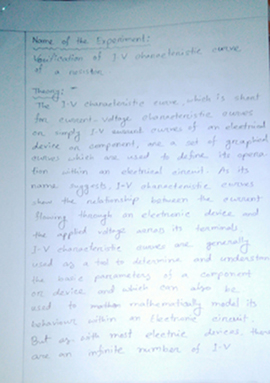 Name of the Experiment:
Verification of I-V characteristic curve
of a resistor
Theory:-
The I-V characteristic curve, which is short
for current-voltage characteristic curves
or simply I-V curves of an electrical
device or component, are a set of graphical
curves which are used to define its opera-
tion within an electrical circuit. As its
name suggests, I-V characteristic curves
show the relationship between the current
flowing through an electronic device and
the applied voltage across its terminals.
I-V characteristic curves are generally
used as a tool to determine and understand
the basic parameters of a component
or device and which can also be
used to mathematically model its
behaviour within an Electronic circuit.
But as with most electronic devices, there
are an infinite number of I-V